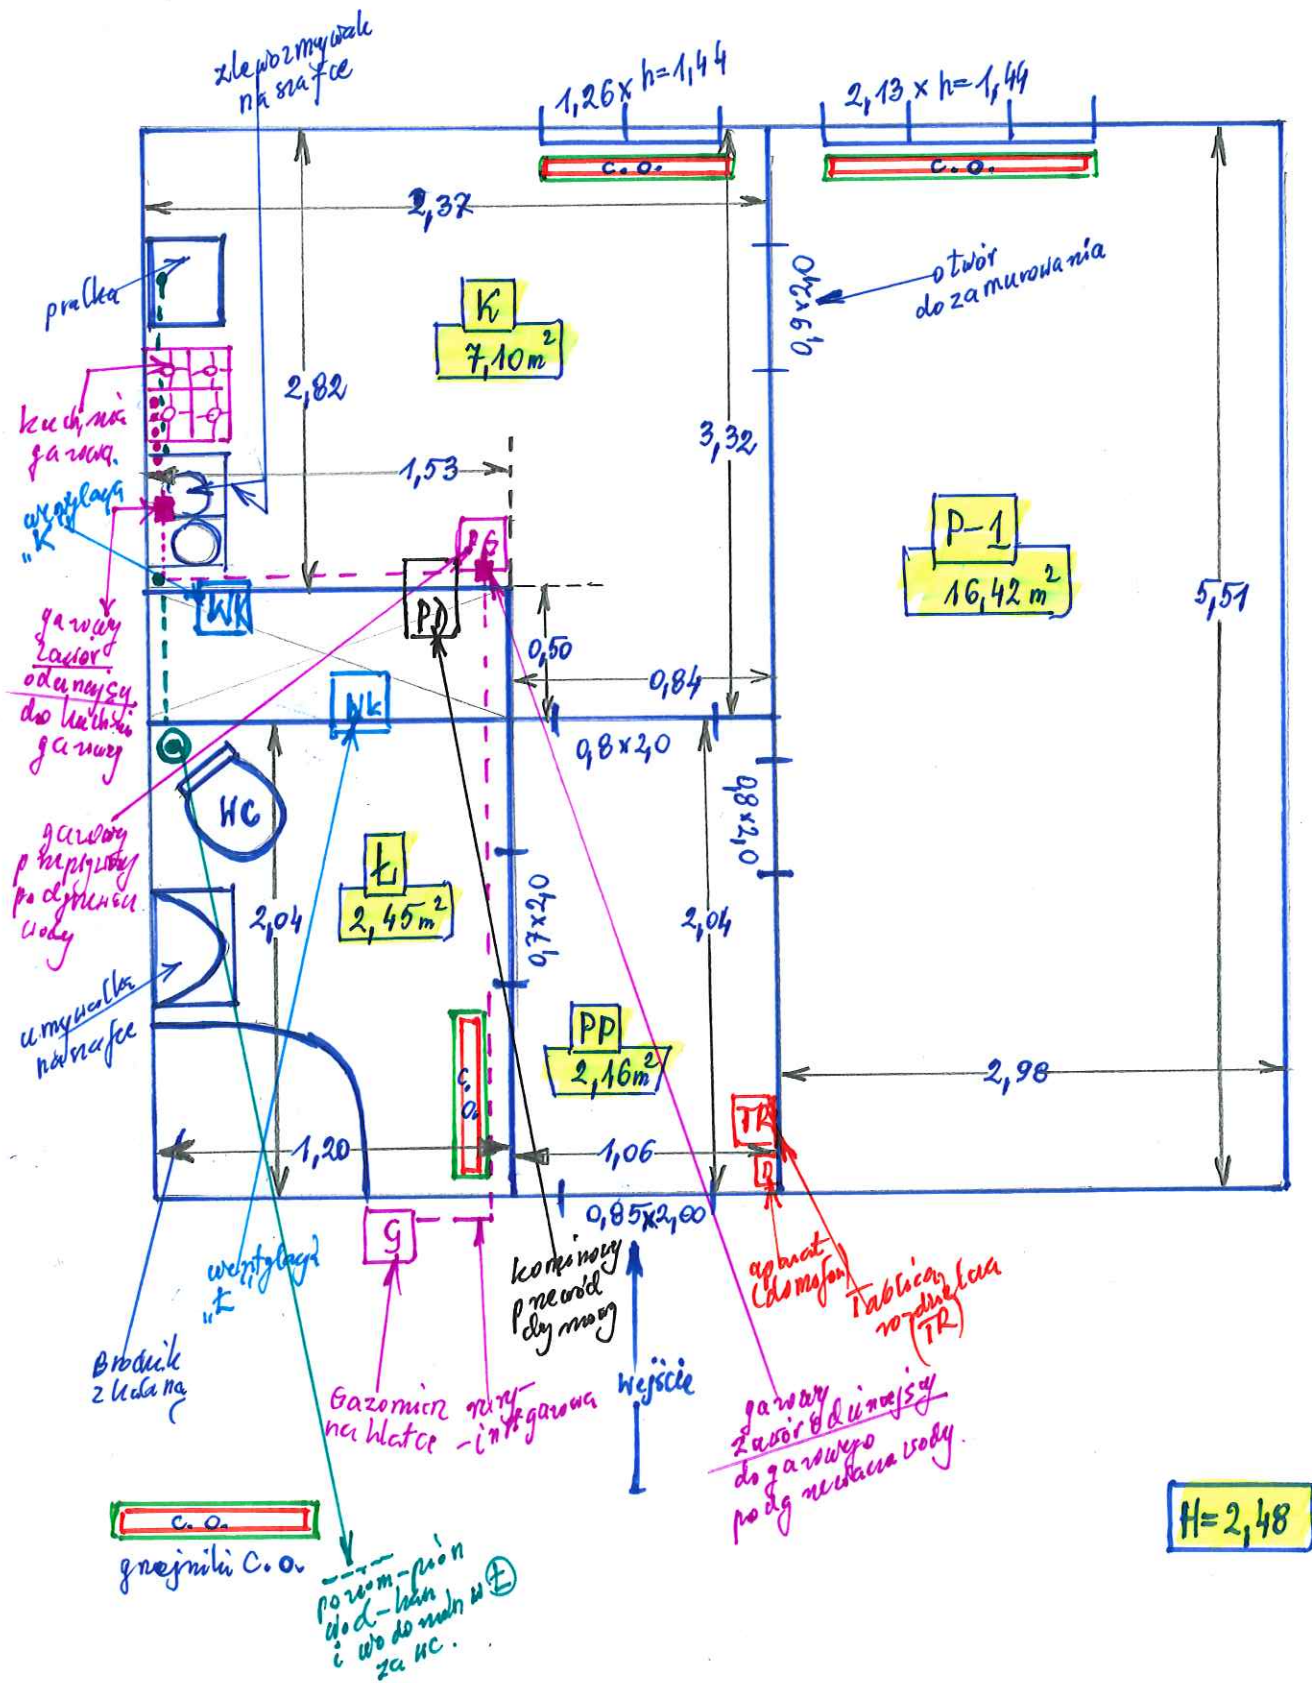 zlewozmywak
na szafce
1,26 x h=1,44
2,13 x h=1,44
c.o.
c.o.
2,37
pralka
K
7,10 m²
0,9 x 2,0
otwór
do zamurowania
2,82
3,32
kuchnia
gazowa.
1,53
wentylacja
„K
PG
P-1
16,42 m²
5,51
WK
PD
0,50
0,84
gazowy
zawór
odcinający
do kuchni
gazowej
WŁ
0,8 x 2,0
0,8 x 2,0
WC
gazowy
przepływowy
podgrzewacz
wody
Ł
2,45 m²
2,04
0,7 x 2,0
2,04
umywalka
na szafce
PP
2,16 m²
c.o.
2,98
TR
D
1,20
1,06
0,85 x 2,00
G
wentylacja
„Ł
kominowy
przewód
dymowy
aparat
(domofon)
Tablica
rozdzielcza
(TR)
Brodzik
z kabiną
Gazomierz
na klatce
rury
-inst. gazowa
Wejście
gazowy
zawór odcinający
do gazowego
podgrzewacza wody.
H=2,48
c.o.
grzejniki c.o.
poziom-pion
wod-kan
i wodomierz w Ł
za WC.